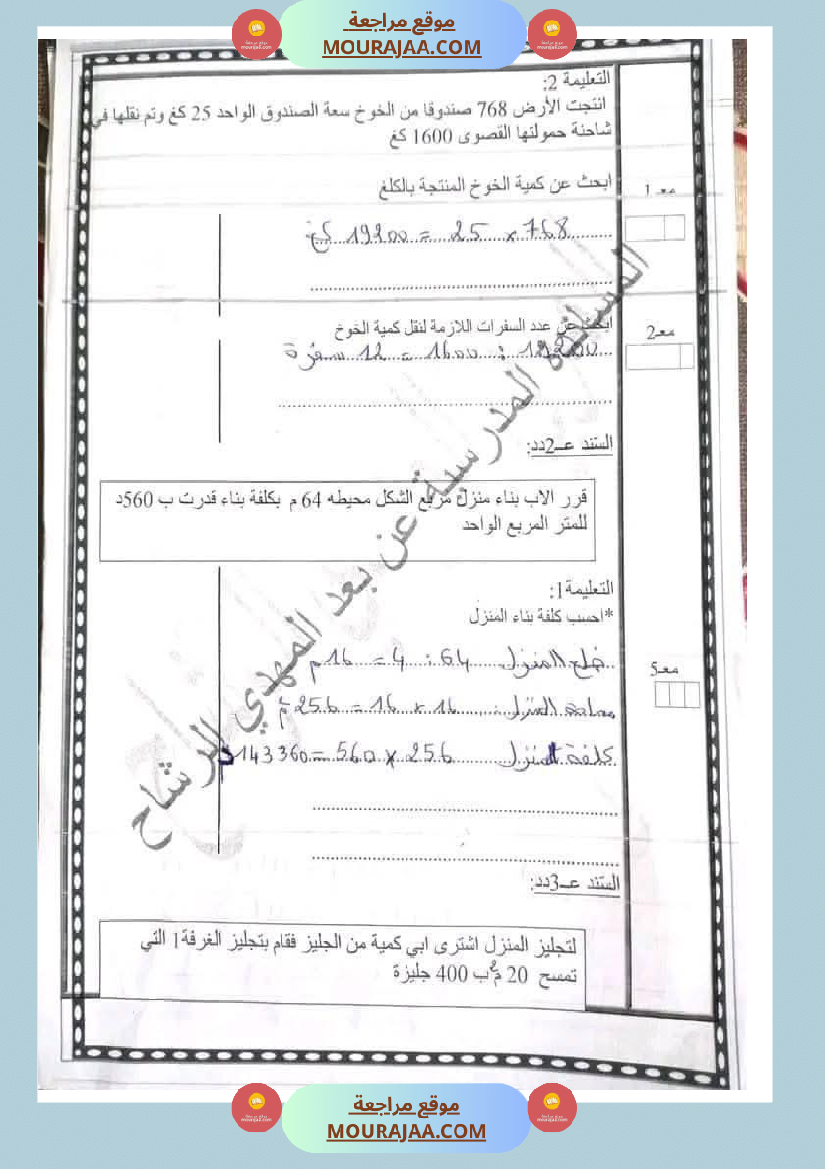 موقع مراجعة
MOURAJAA.COM
التعليمة 2:
انتجت الأرض 768 صندوقا من الخوخ سعة الصندوق الواحد 25 كغ وتم نقلها في
شاحنة حمولتها القصوى 1600 كغ
ابحث عن كمية الخوخ المنتجة بالكلغ
معـ 1
768 × 25 = 19200 كغ
ابحث عن عدد السفرات اللازمة لنقل كمية الخوخ
معـ2
19200 : 1600 = 12 سفرة
السند عــ2دد:
قرر الاب بناء منزل مربع الشكل محيطه 64 م بكلفة بناء قدرت ب 560د
للمتر المربع الواحد
التعليمة1:
*احسب كلفة بناء المنزل
معـ5
ضلع المنزل 64 : 4 = 16 م
مساحة المنزل : 16 × 16 = 256 م²
كلفة المنزل 256 × 560 = 143360 د
السند عــ3دد:
لتجليز المنزل اشترى ابي كمية من الجليز فقام بتجليز الغرفة1 التي
تمسح 20 م² ب 400 جليزة
المساندة المدرسية عن بعد المهدي الرشاح
موقع مراجعة
MOURAJAA.COM